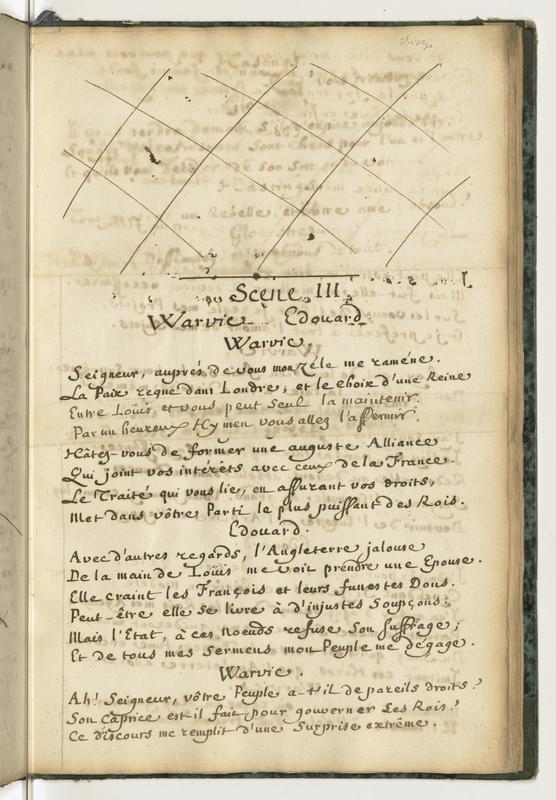 Scene III.
Warvic Edouard.
Warvic.
Seigneur, auprés de vous mon Zéle me raméne.
La Paix regne dans Londre; et le choix d'une Reine
Entre Loüis et vous peut seul la maintenir.
Par un heureux Hymen vous allez l'affermir.
Hâtez-vous de former une auguste Alliance
Qui joint vos intérêts avec ceux de la France.
Le Traité qui vous lie, en assurant vos droits,
Met dans vôtre Parti le plus puissant des Rois.
Edouard.
Avec d'autres regards, l'Angleterre jalouse
De la main de Loüis me voit prendre une Epouse.
Elle craint les François et leurs funestes Dons.
Peut-être elle se livre à d'injustes Soupçons:
Mais l'État, à ces noeuds refuse son suffrage;
Et de tous mes Sermens mon Peuple me dégage.
Warvic.
Ah! Seigneur, vôtre Peuple a-t'il de pareils droits?
Son Caprice est il fait pour gouverner les Rois?
Ce discours me remplit d'une Surprise extrême.